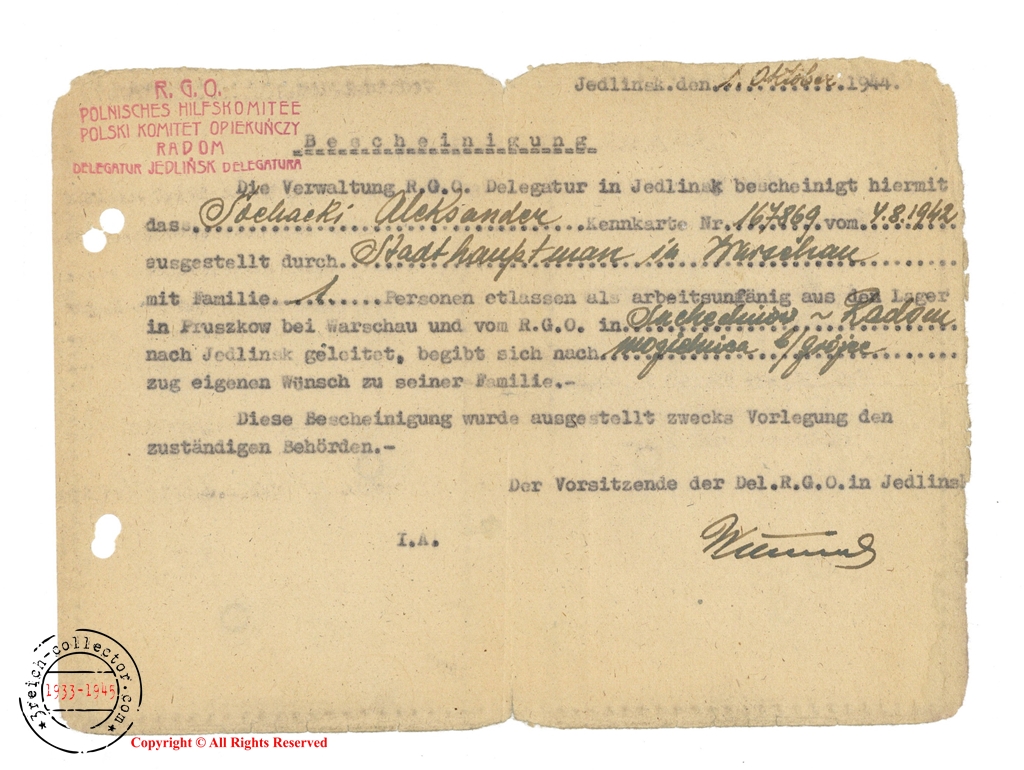 R. G. O.
POLNISCHES HILFSKOMITEE
POLSKI KOMITET OPIEKUŃCZY
RADOM
DELEGATUR JEDLIŃSK DELEGATURA
Jedlinsk.den 1. Oktober 1944.
Bescheinigung
Die Verwaltung R.G.O. Delegatur in Jedlinsk bescheinigt hiermit
das Sochacki Aleksander Kennkarte Nr. 167869 vom 4.8.1942
ausgestellt durch Stadthauptman in Warschau
mit Familie 1 Personen etlassen als arbeitsunfänig aus den Lager
in Pruszkow bei Warschau und vom R.G.O. in Suchedniow ~ Radom
nach Jedlinsk geleitet, begibt sich nach mogielnica b/grójec
zug eigenen Wünsch zu seiner Familie.-
Diese Bescheinigung wurde ausgestellt zwecks Vorlegung den
zuständigen Behörden.-
Der Vorsitzende der Del.R.G.O.in Jedlinsk
I.A.
3reich-collector.com
1933-1945
Copyright © All Rights Reserved